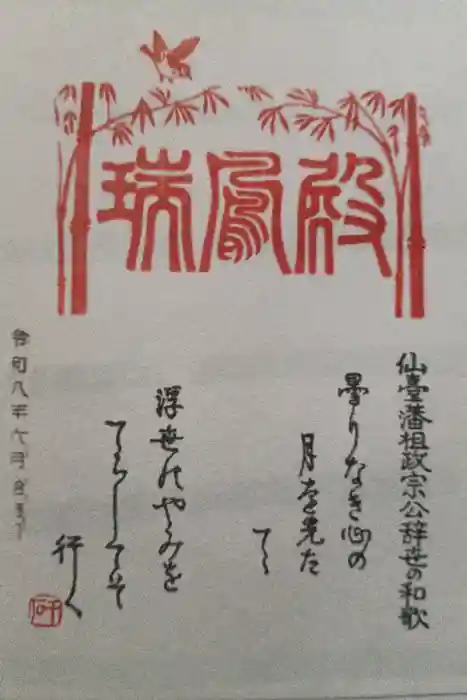 瑞鳳殿
仙臺藩祖政宗公辞世の和歌
曇りなき心の
月を先た
てゝ
浮世のやみを
てらしてそ
行く
令和八年